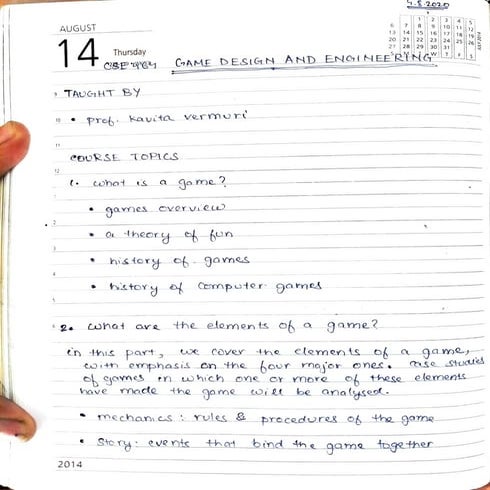 4.8.2020
AUGUST
14 Thursday
GAME DESIGN AND ENGINEERING
TAUGHT BY
• prof. kavita vemuri
COURSE TOPICS
1. what is a game?
• games overview
• a theory of fun
• history of games
• history of computer games
2. what are the elements of a game?
in this part, we cover the elements of a game,
with emphasis on the four major ones. case studies
of games in which one or more of these elements
have made the game will be analysed.
• mechanics: rules & procedures of the game
• story: events that bind the game together
2014